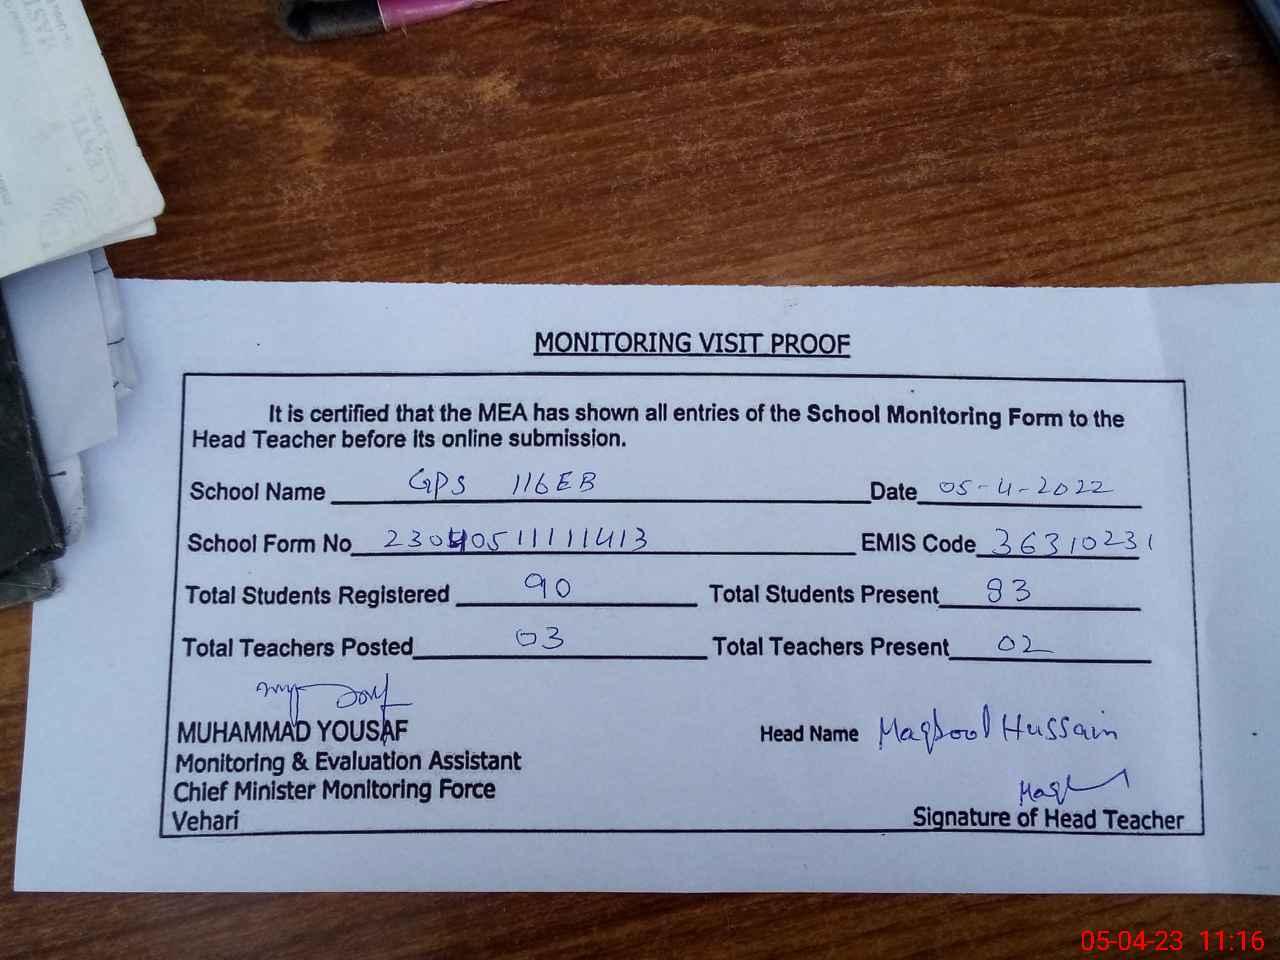 MONITORING VISIT PROOF
It is certified that the MEA has shown all entries of the School Monitoring Form to the
Head Teacher before its online submission.
School Name GPS 116EB Date 05-4-2022
School Form No 23040511111413 EMIS Code 36310231
Total Students Registered 90 Total Students Present 83
Total Teachers Posted 03 Total Teachers Present 02
MUHAMMAD YOUSAF
Head Name Maqbool Hussain
Monitoring & Evaluation Assistant
Chief Minister Monitoring Force
Vehari
Signature of Head Teacher
05-04-23 11:16